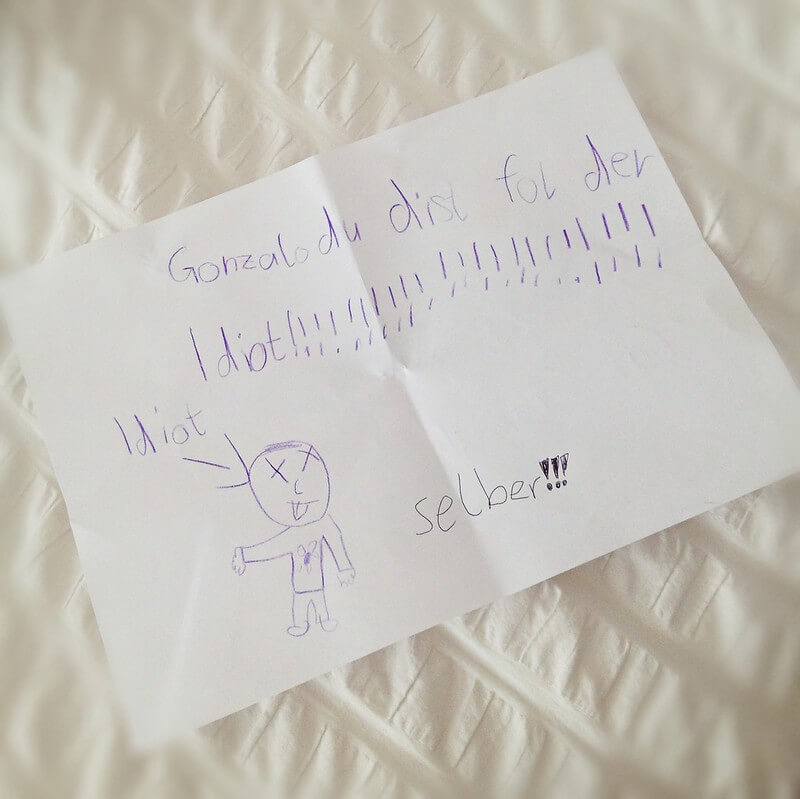 Gonzalo du dist fol der
Idiot!!!!!!!!!!!!!!!!!!!!!!!!
Idiot
selber!!!